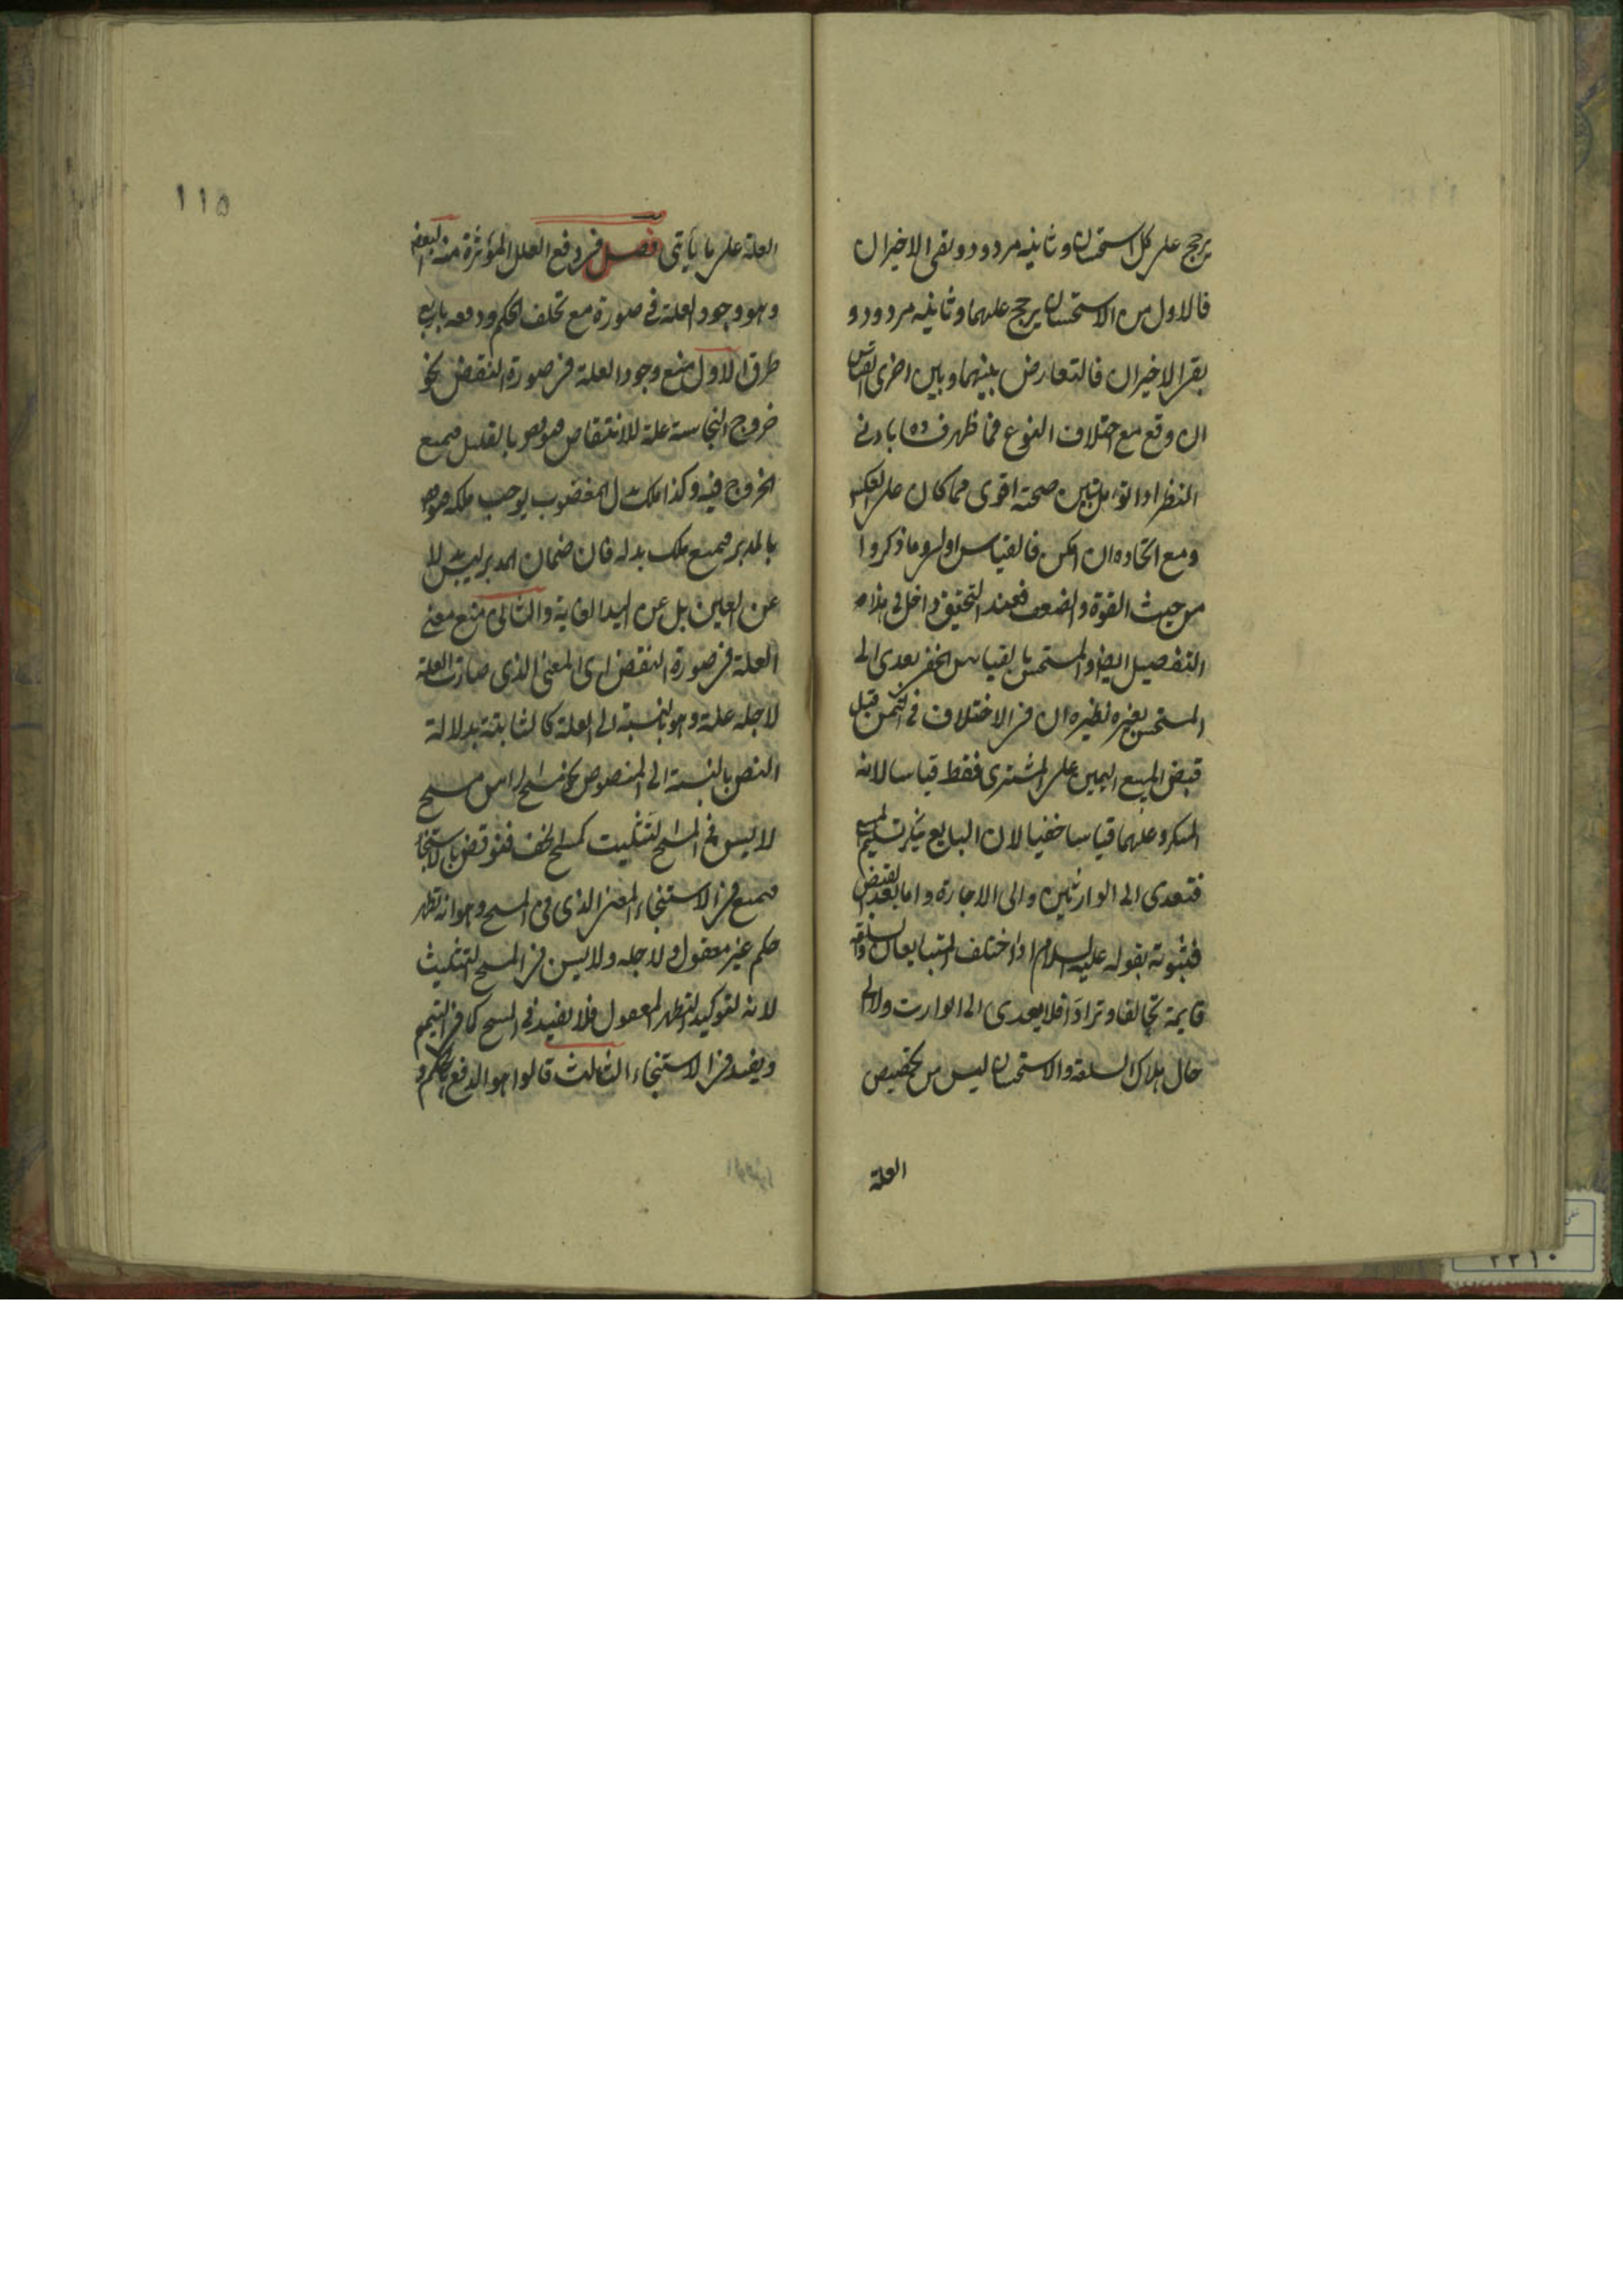 يرجح على كل استحسان وثانيه مردود وبقى الاخيران
فالاول من الاستحسان يرجح عليهما وثانيه مردود و
بقى الاخيران فالتعارض بينهما وبين اخرى القياس
ان وقع مع اختلاف النوع فما ظهر فساده بادنى
النظر اذا تؤمل تبين صحته اقوى مما كان على العكس
ومع اتحاده ان امكن فالقياس اولى وما ذكروا
من حيث القوة والضعف فعند التحقيق داخل فى هذا
التفصيل ايضا والمستحسن بالقياس الخفى يعدى الى
المستحسن بغيره نظيره ان فى الاختلاف فى الثمن قبل
قبض المبيع اليمين على المشترى فقط قياسا لانه
المنكر وعليهما قياسا خفيا لان البايع ينكر تسليم المبيع
فتعدى الى الوارثين والى الاجارة واما بعد القبض
فثبوته بقوله عليه السلام اذا اختلف المتبايعان والسلعة
قايمة تحالفا وترادا فلا يعدى الى الوارث ولا الى
حال هلاك السلعة والاستحسان ليس من تخصيص
العلة
١١٥
العلة على ما يأتى فصل فى دفع العلل المؤثرة منه النقض
وهو وجود العلة فى صورة مع تخلف الحكم ودفعه باربع
طرق الاول منع وجود العلة فى صورة النقض نحو
خروج النجاسة علة للانتقاض فنوقض بالقليل فيمنع
الخروج فيه وكذا ملك بدل المغصوب يوجب ملكه فنوقض
بالمدبر فيمنع ملك بدله فان ضمان المدبر ليس بدلا
عن العين بل عن اليد الفايتة والثانى منع معنى
العلة فى صورة النقض اى المعنى الذى صارت العلة
لاجله علة وهو بالنسبة الى العلة كالثابتة بدلالة
النص بالنسبة الى المنصوص نحو مسح الراس مسح
لا يسن فى المسح لتثليث كمسح الخف فنوقض بالاستنجاء
فيمنع فى الاستنجاء المعنى الذى فى المسح وهو انه تطهير
حكمى غير معقول ولاجله ولا يسن فى المسح التثليث
لانه لتوكيد التطهر المعقول فلا يفيد فى المسح كما فى التيمم
ويفيد فى الاستنجاء الثالث قالوا هو الدفع بالحكم و
٢٢١٠